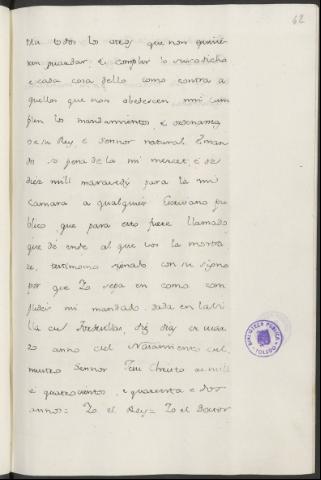 62
tra todos los otros, que non quisie-
ren guardar, é complir lo susodicho
e cada cosa dello como contra a-
quellos que non obedescen, nin cum-
plen los mandamientos, é ordenanzas
de su Rey, é Sennor natural. E man-
do so pena de la mi merced, é de
diez mill maravedis para la mi
Camara a qualquier Escrivano pu-
blico que para esto fuere llamado
que dé ende al que vos la mostra-
re, testimonio signado con su signo
por que Yo sepa en como com-
plides mi mandado. Dada en la Vi-
lla de Tordesillas, diez dias de mar-
zo anno del Nascimiento del
nuestro Sennor Jesu Christo de mill
é quatrocientos, e quarenta e dos
annos: Yo el Rey = Yo el Doctor
BIBLIOTECA PUBLICA
TOLEDO